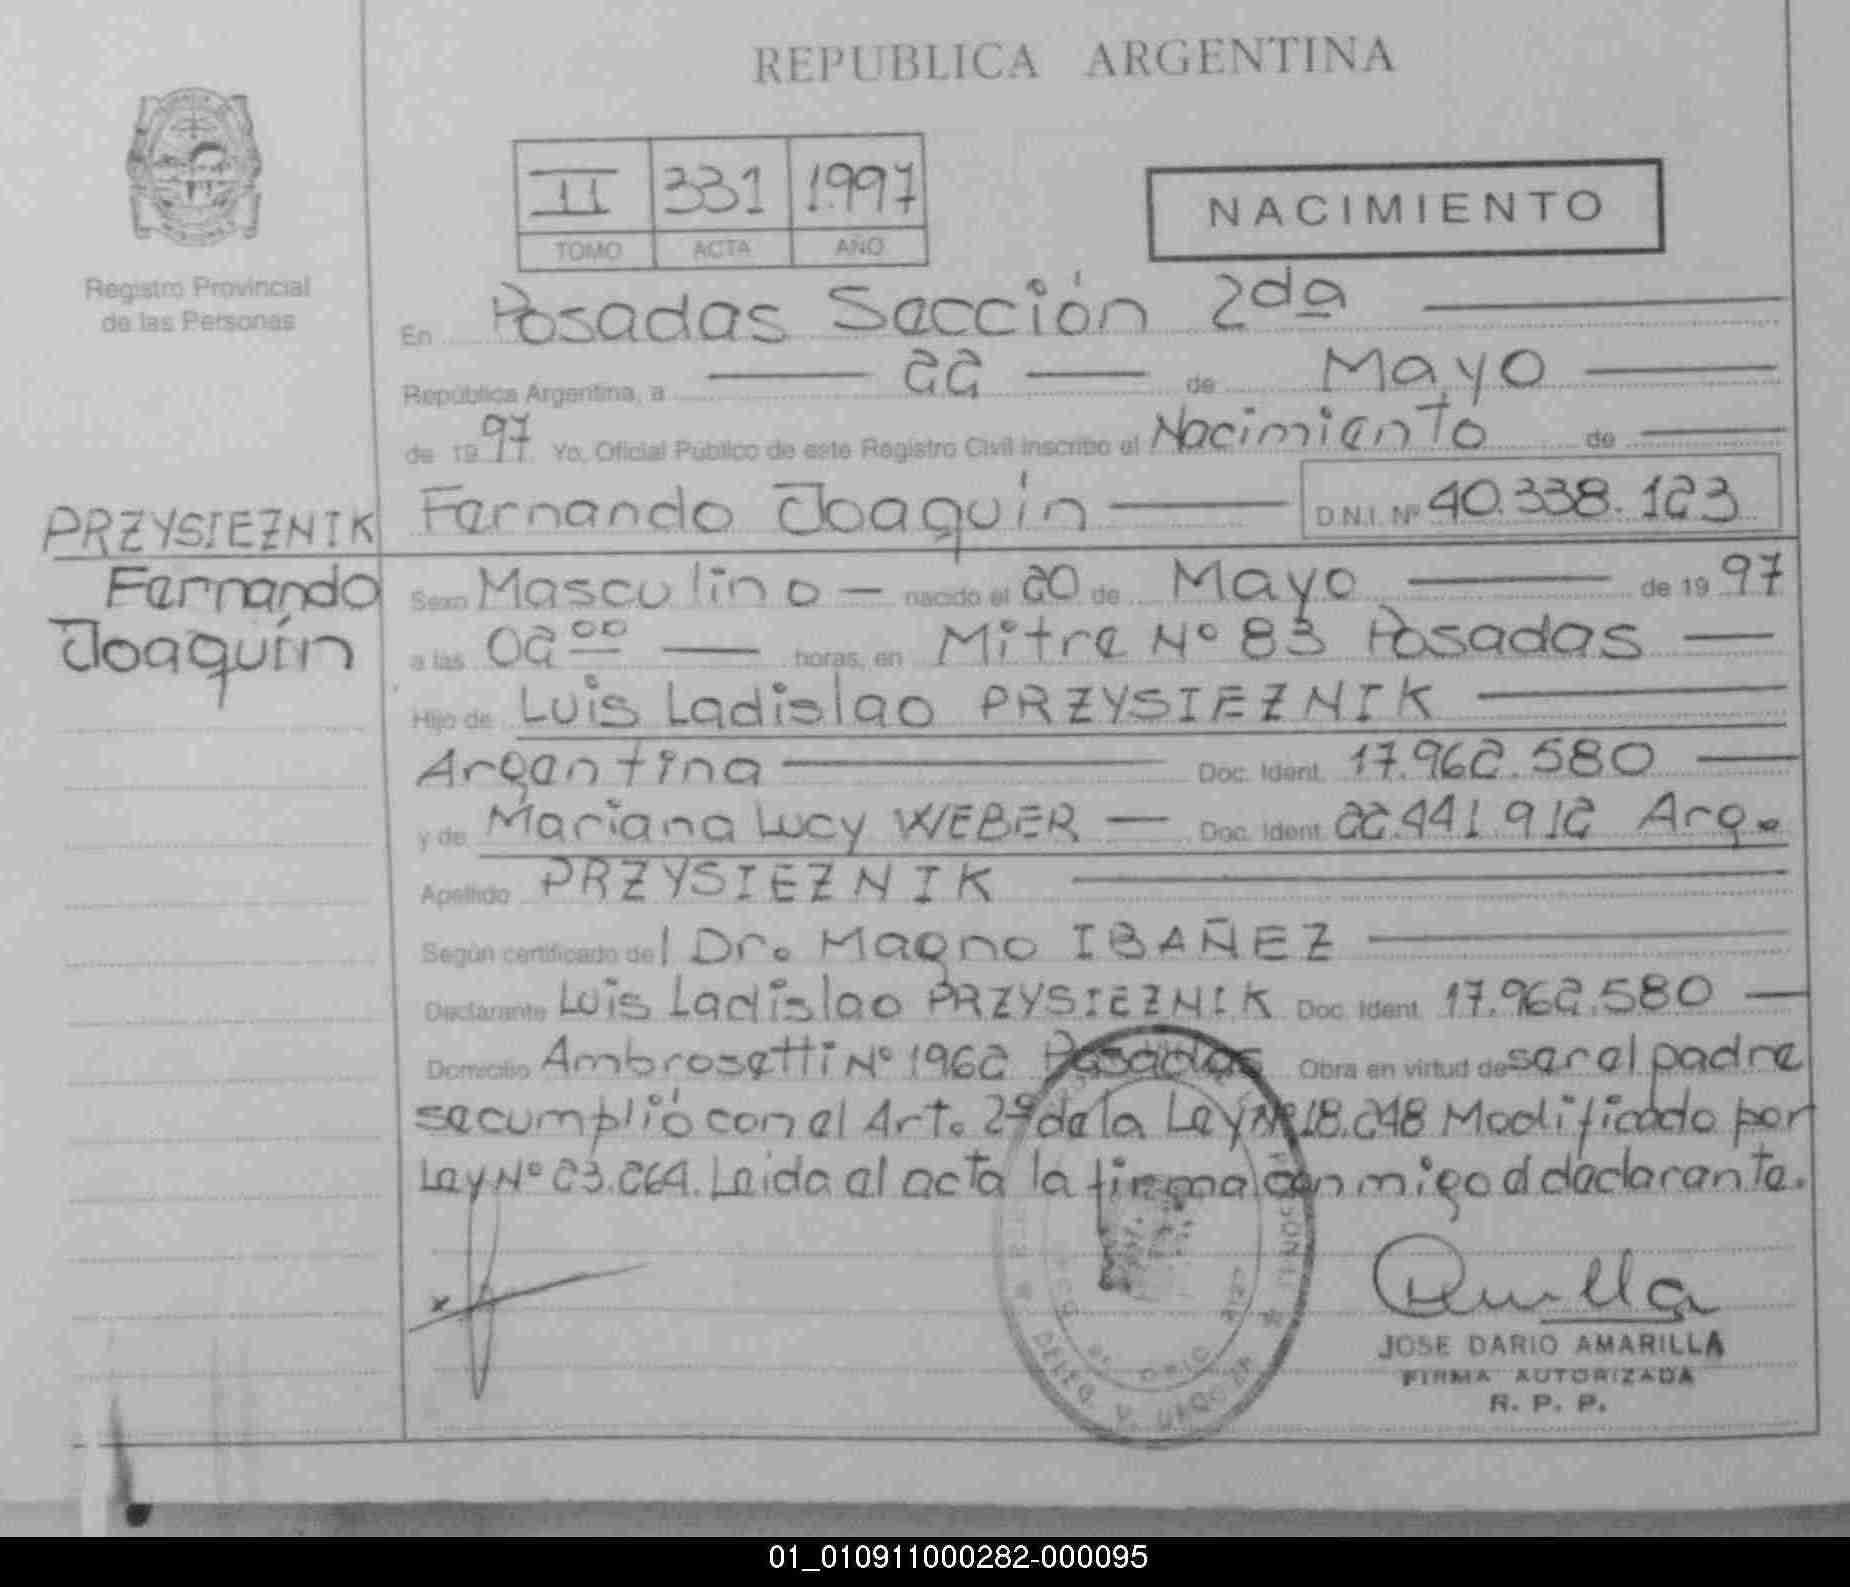 REPUBLICA ARGENTINA
II 331 1.997
TOMO ACTA AÑO
NACIMIENTO
Registro Provincial
de las Personas
En Posadas Sección 2da
República Argentina, a 22 de Mayo
de 1997 Yo, Oficial Público de este Registro Civil inscribo el Nacimiento de
PRZYSIEZNIK
Fernando
Joaquín
Fernando Joaquín D.N.I. Nº 40.338.123
Sexo Masculino nacido el 20 de Mayo de 1997
a las 02 00 horas, en Mitre Nº 83 Posadas
Hijo de Luis Ladislao PRZYSIEZNIK
Argentina Doc. Ident. 17.962.580
y de Mariana Lucy WEBER Doc. Ident. 22.441.912 Arg.
Apellido PRZYSIEZNIK
Según certificado del Dr. Magno IBAÑEZ
Declarante Luis Ladislao PRZYSIEZNIK Doc. Ident. 17.962.580
Domicilio Ambrosetti Nº 1962 Posadas Obra en virtud de ser el padre
se cumplió con el Art. 2º de la Ley Nº 18.248 Modificado por
Ley Nº 23.264. Leida el acta la firma conmigo el declarante.
JOSE DARIO AMARILLA
FIRMA AUTORIZADA
R. P. P.
01_010911000282-000095